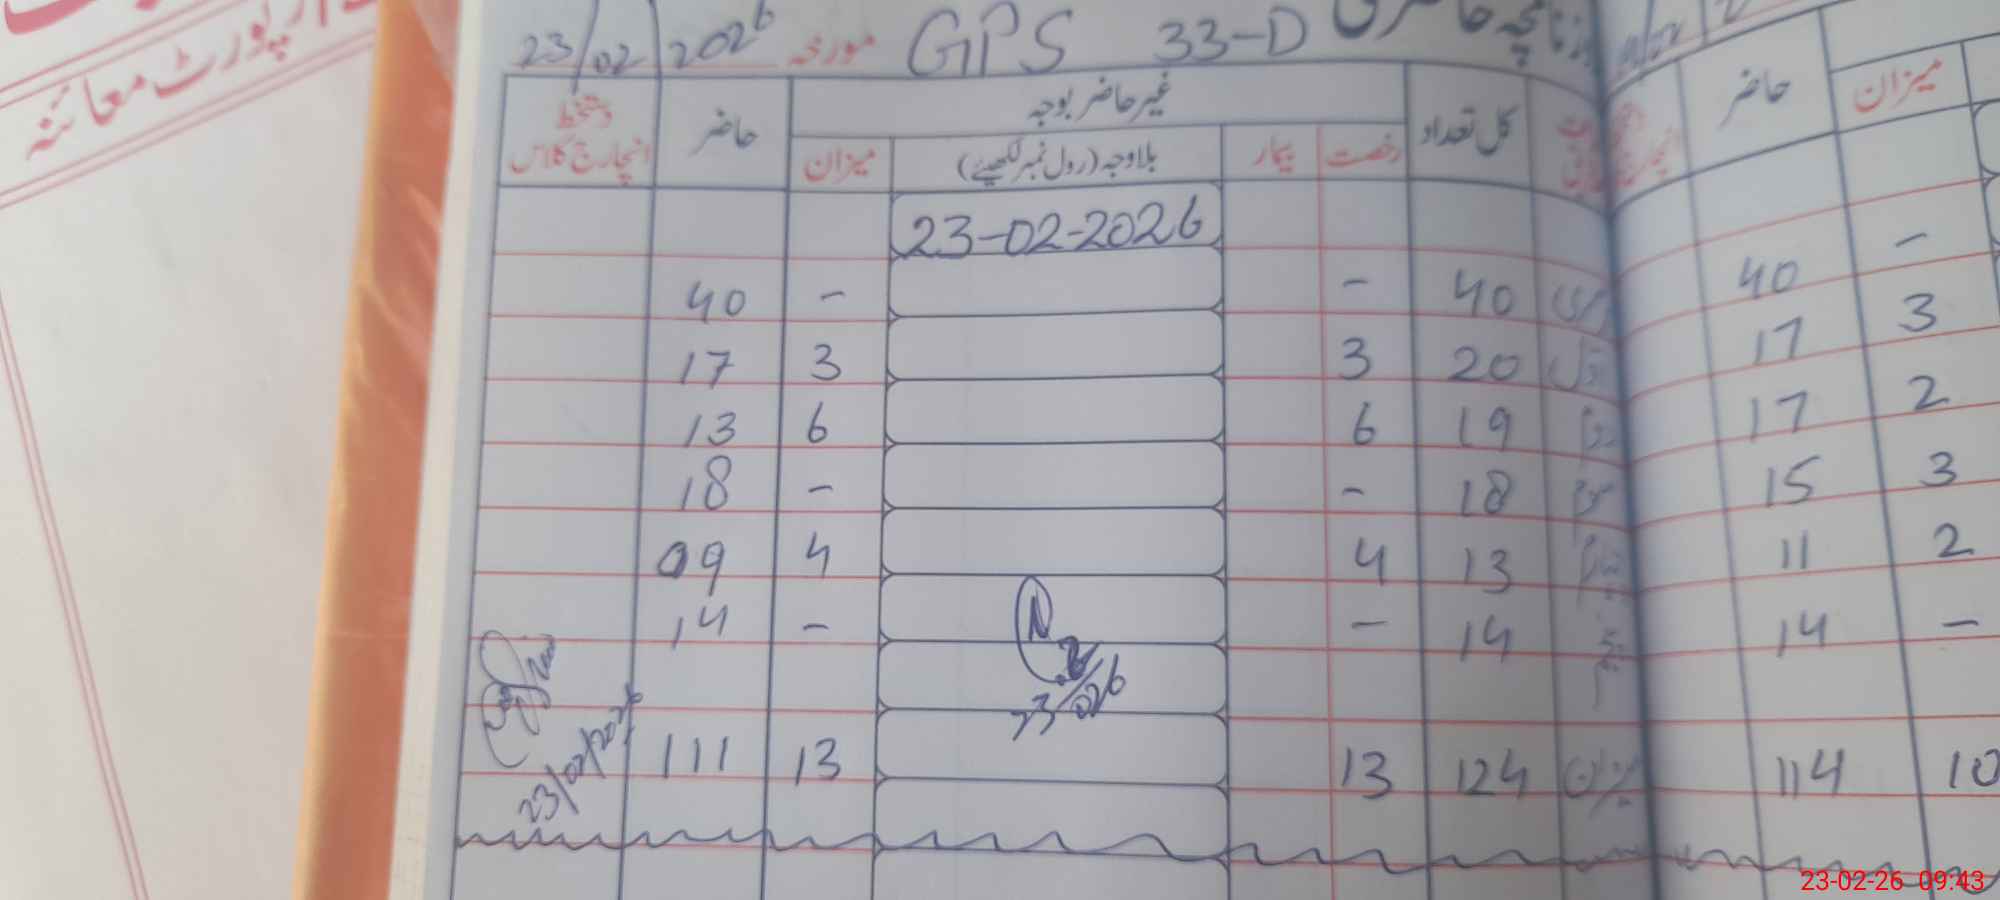 رپورٹ معائنہ
روزنامچہ حاضری GPS 33-D مورخہ 23/02/2026
کل تعداد غیر حاضر بوجہ حاضر دستخط انچارج کلاس
رخصت بیمار بلاوجہ (رول نمبر لکھیئے) میزان
23-02-2026
40 - - 40
اول 20 3 3 17
دوم 19 6 6 13
سوم 18 - - 18
13 4 4 09
14 - - 14
23/02/26
میزان 124 13 13 111
23/02/2026
میزان حاضر
- 40
3 17
2 17
3 15
2 11
- 14
10 114
23-02-26 09:43